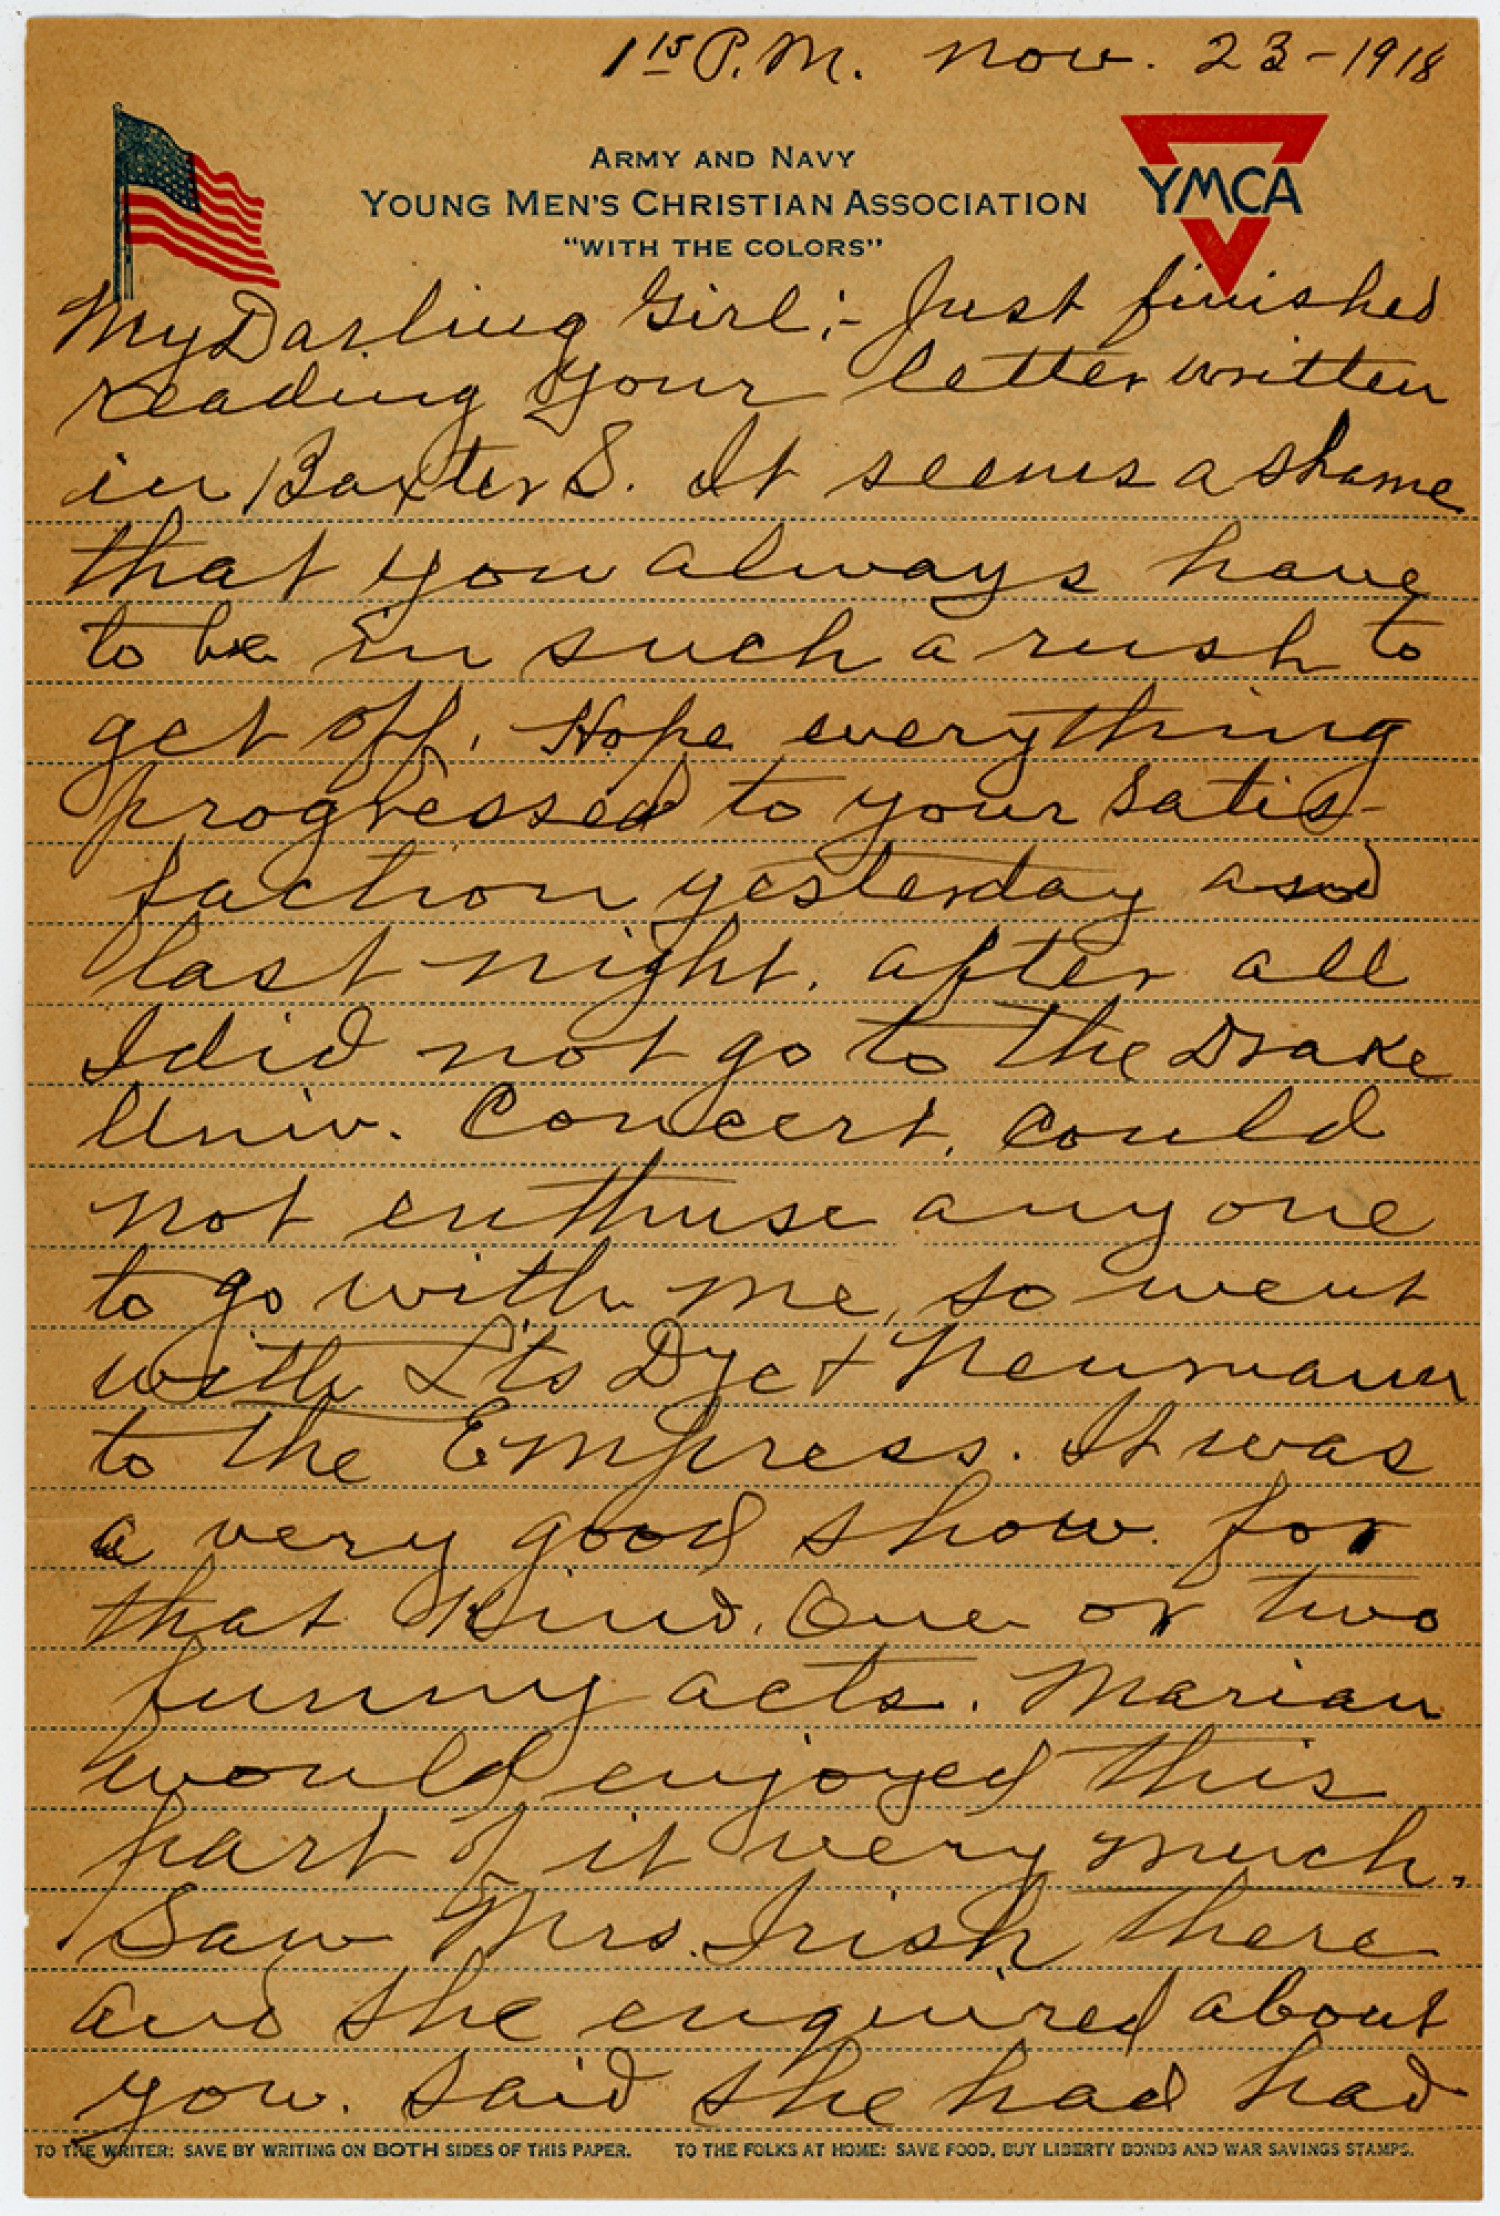 1 15 P.M. Nov. 23-1918
ARMY AND NAVY
YOUNG MEN'S CHRISTIAN ASSOCIATION
"WITH THE COLORS"
YMCA
My Darling Girl;- Just finished
reading your letter written
in Baxter S. It seems a shame
that you always have
to be in such a rush to
get off. Hope everything
progressed to your satis-
faction yesterday and
last night. After all
I did not go to the Drake
Univ. Concert, could
not enthuse any one
to go with me, so went
with Lts Dye + Neumann
to the Empress. It was
a very good show for
that kind. One or two
funny acts. Marian
would enjoyed this
part of it very much.
Saw Mrs. Irish there
and she enquired about
you. Said she had had
TO THE WRITER: SAVE BY WRITING ON BOTH SIDES OF THIS PAPER. TO THE FOLKS AT HOME: SAVE FOOD, BUY LIBERTY BONDS AND WAR SAVINGS STAMPS.